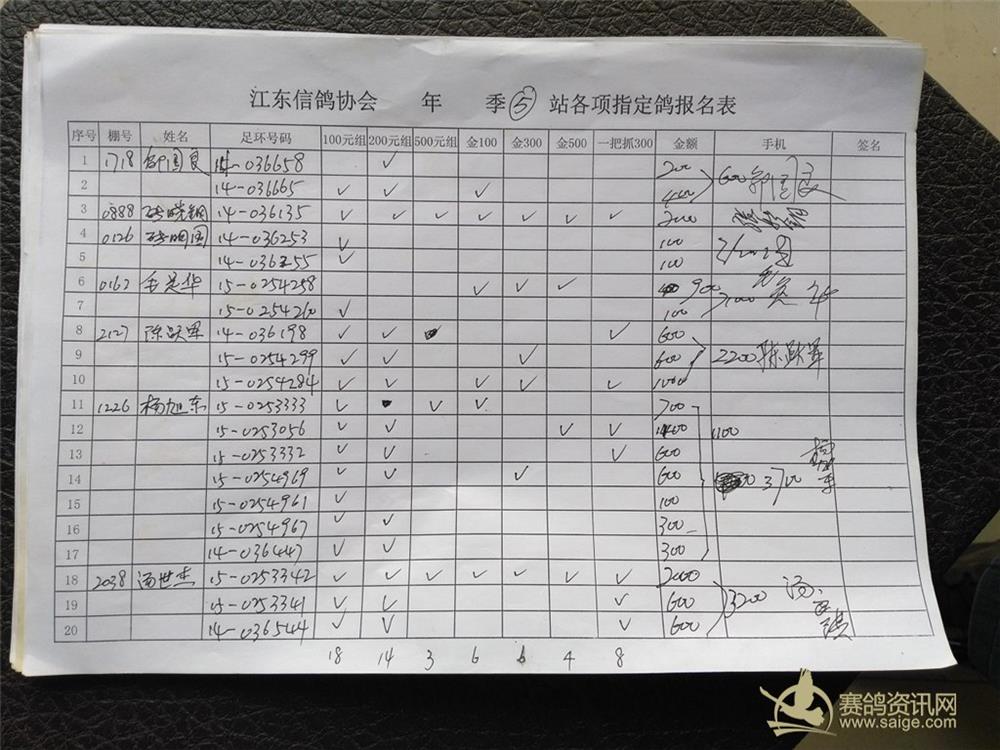 江东信鸽协会 年 季 ⑤ 站各项指定鸽报名表
序号 棚号 姓名 足环号码 100元组 200元组 500元组 金100 金300 金500 一把抓300 金额 手机 签名
1 1718 邹国良 14-036658 ✓ 200
2 14-036665 ✓ ✓ ✓ 400 600
3 0888 14-036135 ✓ ✓ ✓ ✓ ✓ ✓ ✓ 2000
4 0126 14-036253 ✓ 100
5 14-036255 ✓ 100
6 0162 毛是华 15-0254258 ✓ ✓ ✓ 900
7 15-0254260 ✓ 100
8 2127 陈跃军 14-036198 ✓ ✓ ✓ 600
9 15-0254299 ✓ ✓ ✓ 600 2200 陈跃军
10 15-0254284 ✓ ✓ ✓ ✓ ✓ 1000
11 1226 杨旭东 15-0253333 ✓ ✓ ✓ 700
12 15-0253056 ✓ ✓ ✓ ✓ 1100
13 15-0253332 ✓ ✓ ✓ 600
14 15-0254969 ✓ ✓ ✓ 600 3700
15 15-0254961 ✓ 100
16 15-0254967 ✓ ✓ 300
17 14-036447 ✓ ✓ 300
18 2038 汤世杰 15-0253342 ✓ ✓ ✓ ✓ ✓ ✓ ✓ 2000
19 15-0253341 ✓ ✓ ✓ 600 3200
20 14-036544 ✓ ✓ ✓ 600
18 14 3 6 6 4 8
赛鸽资讯网
www.saige.com